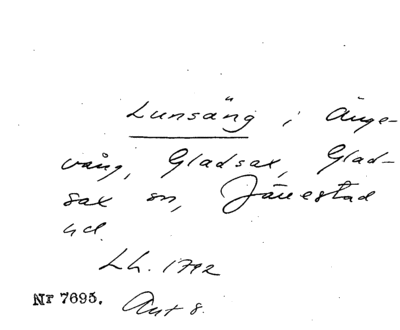 Lunsäng i Änge-
vång, Gladsax, Glad-
sax sn, Järrestad
hd.
Lh. 1792
Nr 7695. Akt 8.